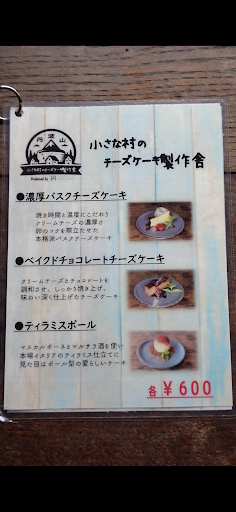 丹波山
小さな村のチーズケーキ製作舎
Produced by
小さな村の
チーズケーキ製作舎
●濃厚バスクチーズケーキ
焼き時間と温度にこだわり
クリームチーズの濃厚さ
卵のコクを際立たせた
本格派バスクチーズケーキ
●ベイクドチョコレートチーズケーキ
クリームチーズとチョコレートを
調和させ、しっかり焼き上げ、
味わい深く仕上げたチーズケーキ
●ティラミスボール
マスカルポーネとマルサラ酒を使い
本場イタリアのティラミス仕立てに
見た目はボール型の愛らしいケーキ
各￥600